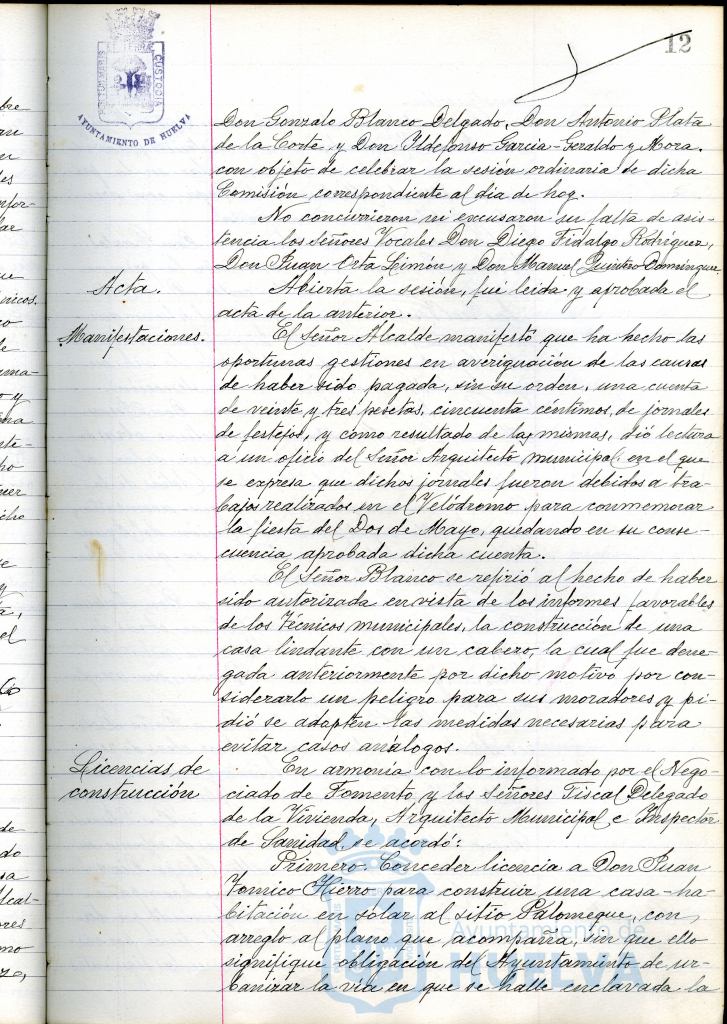 12
AYUNTAMIENTO DE HUELVA
CUSTODIA
Don Gonzalo Blanco Delgado, Don Antonio Plata
de la Corte y Don Ildefonso Garcia-Geraldo y Mora,
con objeto de celebrar la sesión ordinaria de dicha
Comisión correspondiente al día de hoy.
No concurrieron ni excusaron su falta de asis-
tencia los Señores Vocales Don Diego Fidalgo Rodríguez,
Don Juan Orta Limón y Don Manuel Quintero Domínguez.
Acta.
Abierta la sesión, fué leida y aprobada el
acta de la anterior.
Manifestaciones.
El Señor Alcalde manifestó que ha hecho las
oportunas gestiones en averiguación de las causas
de haber sido pagada, sin su orden, una cuenta
de veinte y tres pesetas, cincuenta céntimos, de jornales
de festejos, y como resultado de las mismas, dió lectura
a un oficio del Señor Arquitecto municipal en el que
se expresa que dichos jornales fueron debidos a tra-
bajos realizados en el Velódromo para conmemorar
la fiesta del Dos de Mayo, quedando en su conse-
cuencia aprobada dicha cuenta.
El Señor Blanco se refirió al hecho de haber
sido autorizada en vista de los informes favorables
de los Técnicos municipales, la construcción de una
casa lindante con un cabezo, la cual fue dene-
gada anteriormente por dicho motivo por con-
siderarlo un peligro para sus moradores y pi-
dió se adopten las medidas necesarias para
evitar casos análogos.
Licencias de
construcción
En armonía con lo informado por el Nego-
ciado de Fomento y los Señores Fiscal Delegado
de la Vivienda, Arquitecto Municipal e Inspector
de Sanidad, se acordó:
Primero: Conceder licencia a Don Juan
Hierro para construir una casa-ha-
bitación en solar al sitio Palomeque, con
arreglo al plano que acompaña, sin que ello
signifique obligación del Ayuntamiento de ur-
banizar la vía en que se halle enclavada la
Ayuntamiento de
HUELVA